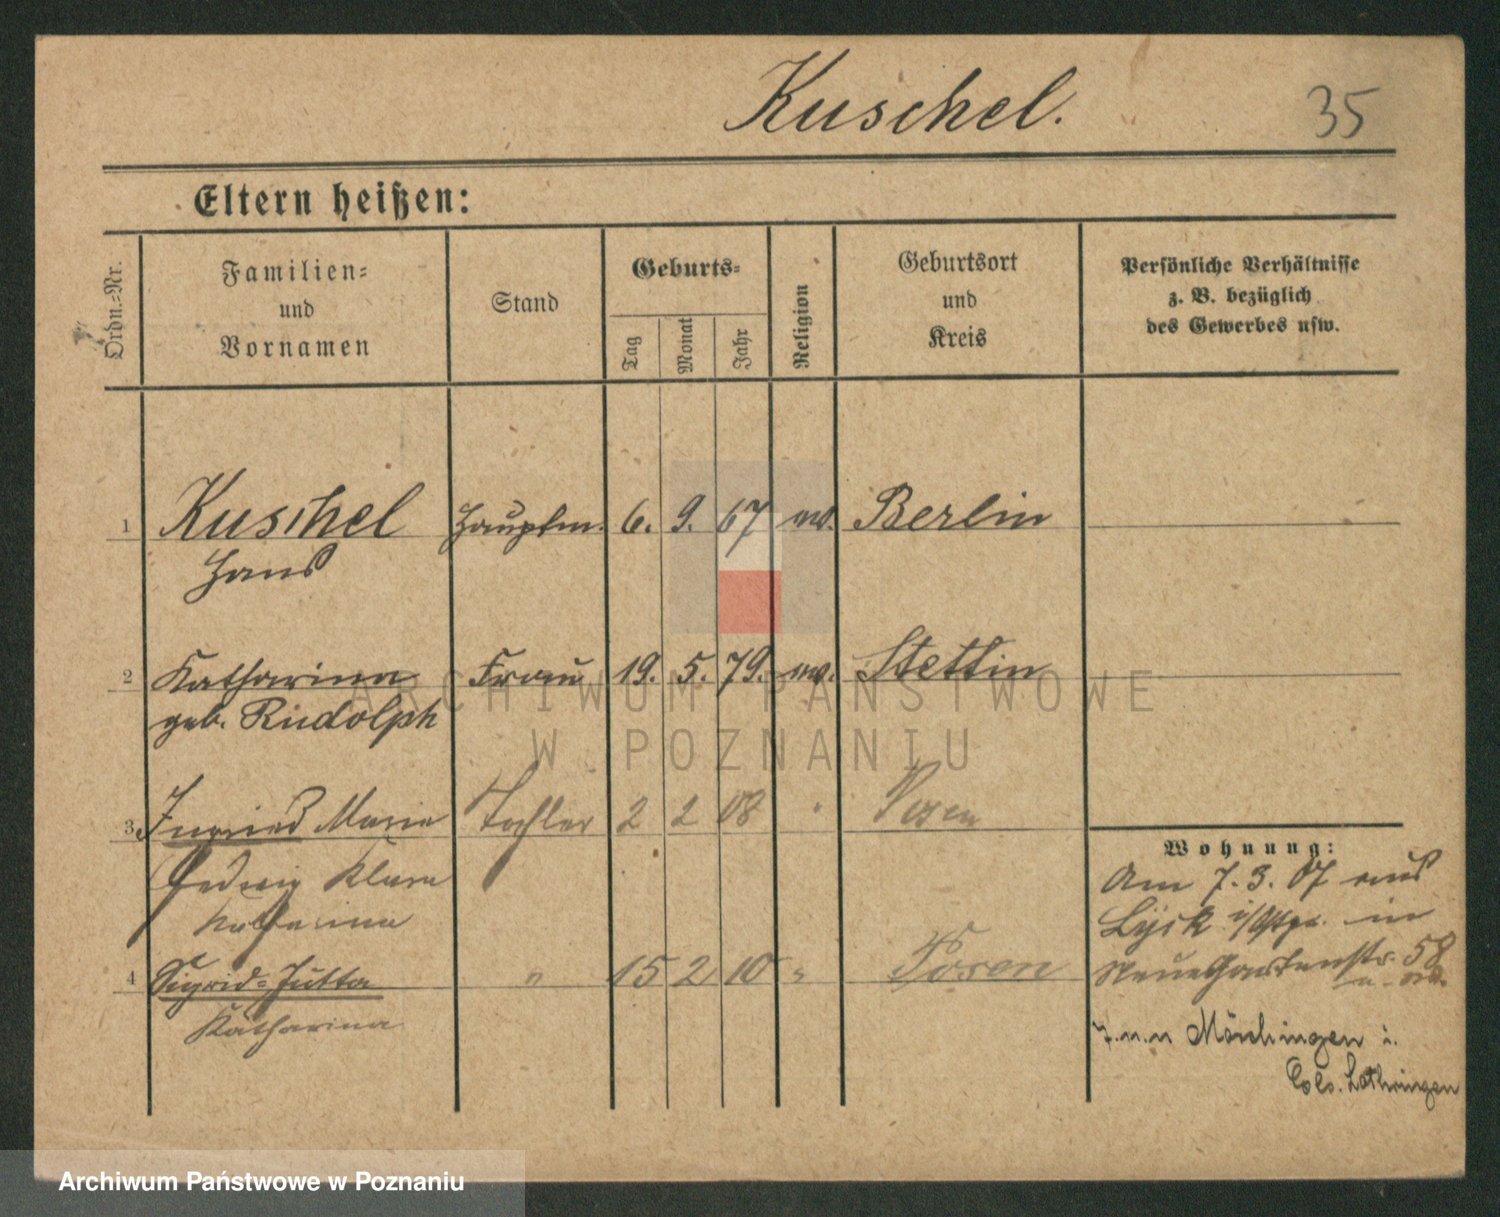 Kuschel.
35
Eltern heißen:
Ordn.=Nr.
Familien=
und
Vornamen
Stand
Geburts=
Tag
Monat
Jahr
Religion
Geburtsort
und
Kreis
Persönliche Verhältnisse
z. B. bezüglich
des Gewerbes usw.
1 Kuschel Hauptm. 6. 9. 67 ev. Berlin
Hans
2 Katharina Frau 19. 5. 79. ev. Stettin
geb. Rudolph
3 Ingried Marie Tochter 2 2 08 " Posen
Hedwig Klara
Katharina
4 Sigrid=Jutta " 15 2 10 " Posen
Katharina
Wohnung:
Am 7. 3. 07 aus
Lyck i/Ostpr. in
Neue Gartenstr. 58
n. Mörchingen i.
Lothringen
ARCHIWUM PAŃSTWOWE
W POZNANIU
Archiwum Państwowe w Poznaniu